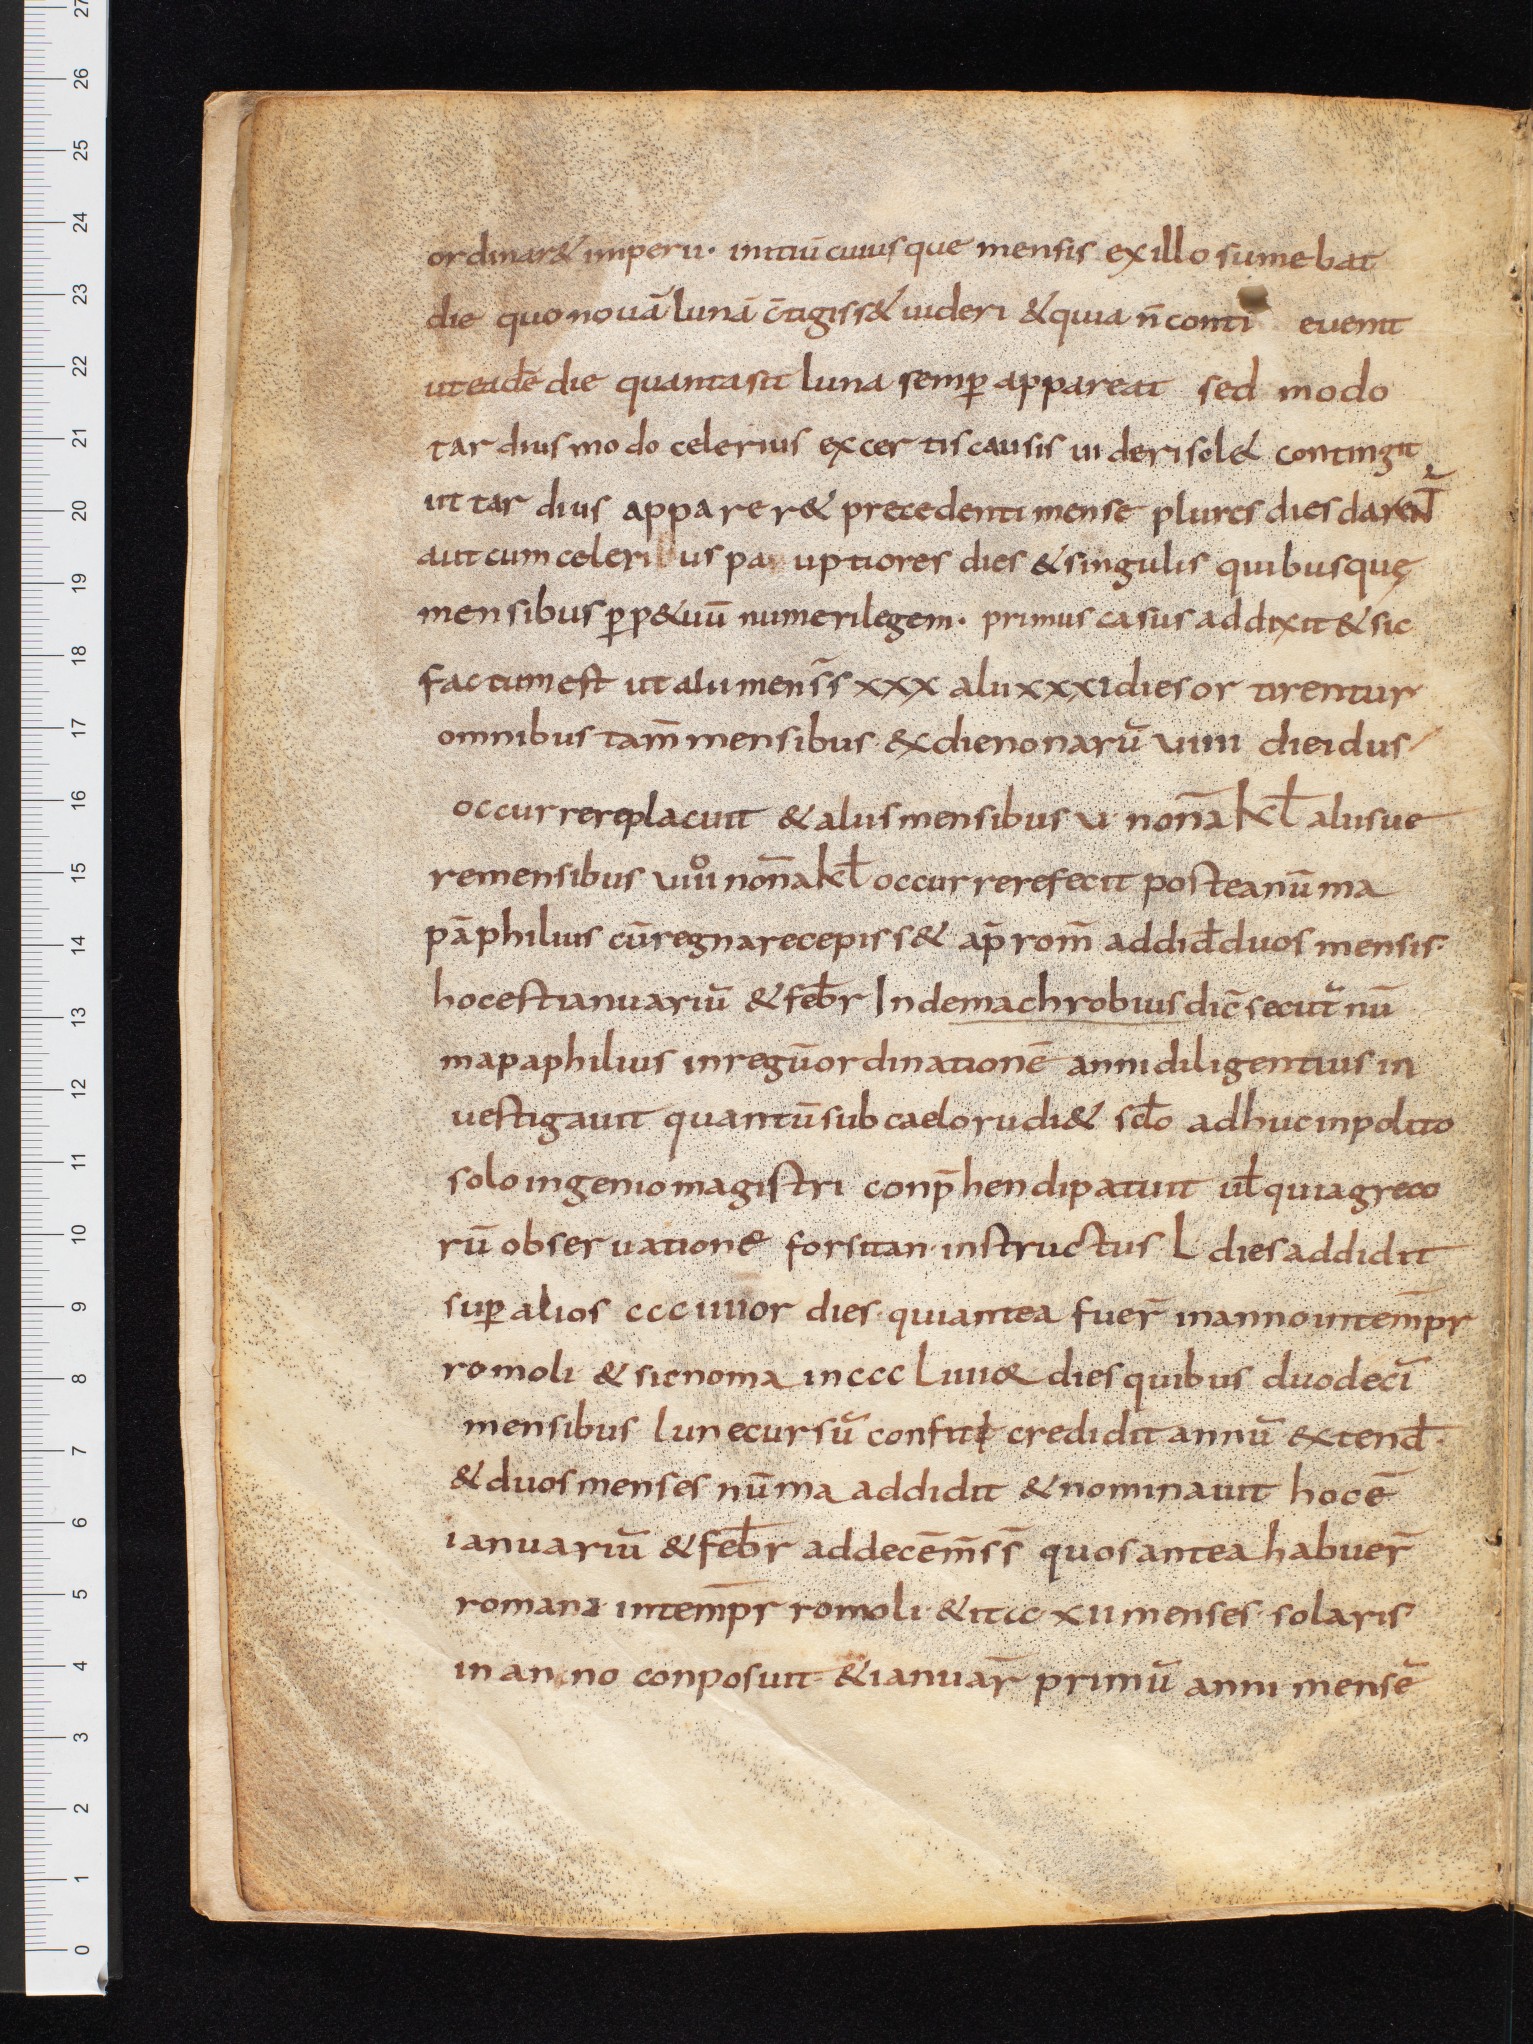 ordinar& imperii· initiū cuiusque mensis ex illo sumebat
die quo nouā lunā c̄tigiss& uideri & quia n̄ conti euenit
ut eadē die quanta sit luna semꝑ appareat sed modo
tardius modo celerius ex certis causis uideri sol& contingit
ut tardius apparer& precedenti mense plures dies darent᷑
aut cum celeri us pa uptiores dies & singulis quibusquę
mensibus ꝑp&uū numeri legem· primus casus addixit & sic
factum est ut alii mens̄s xxx alii xxxi dies or tirentur
omnibus tam̄ mensibus ex die nonarū uiiii die idus
occurrere placuit & aliis mensibus u non̄ a kł aliis ue
re mensibus uii non̄ a kł occurrere fecit postea nūma
pāphilius cū regna recepiss& ap̄ rom̄ addid̄ duos mensis·
hoc est ianuariū & feb̄r Inde machrobius dic̄ secut᷑ nū
mapaphilius in regū ordinationē anni diligentius in
uestigauit quantū sub caelo rudi & sc̄lo adhuc inpolito
solo ingenio magistri conp̄hendi patuit uł quia greco
rū obseruatione forsitan instructus L dies addidit
suꝑ alios ccciiiior dies quiantea fuer̄ in anno intem̄pr
romoli & sic noma in ccc Liiii& dies quibus duodecī
mensibus lune cursū confit credidit annū extend̄·
& duos menses nūma addidit & nominauit hoc ē
ianuariū & feb̄r ad decē m̄s̄s quos antea habuer̄
romani intem̄pr romoli & it cc xii menses solaris
in anno conposuit & ianuar̄ primū anni mensē